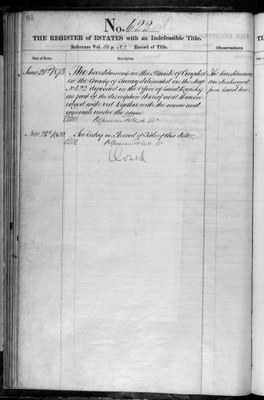 No. 622
THE REGISTER of ESTATES with an Indefeasible Title.
Reference Vol. Record of Title.
Observations
Date of Entry. Description
June 21st 1873 The hereditaments in the Parish of Croydon
in the County of Surrey delineated on the Map
No 622 deposited in the Office of Land Registry
as part of the description thereof and therein
edged with red together with the mines and
minerals under the same
The hereditaments
are discharged
from Land Tax.
See Entry in Record of Title of this date
Closed